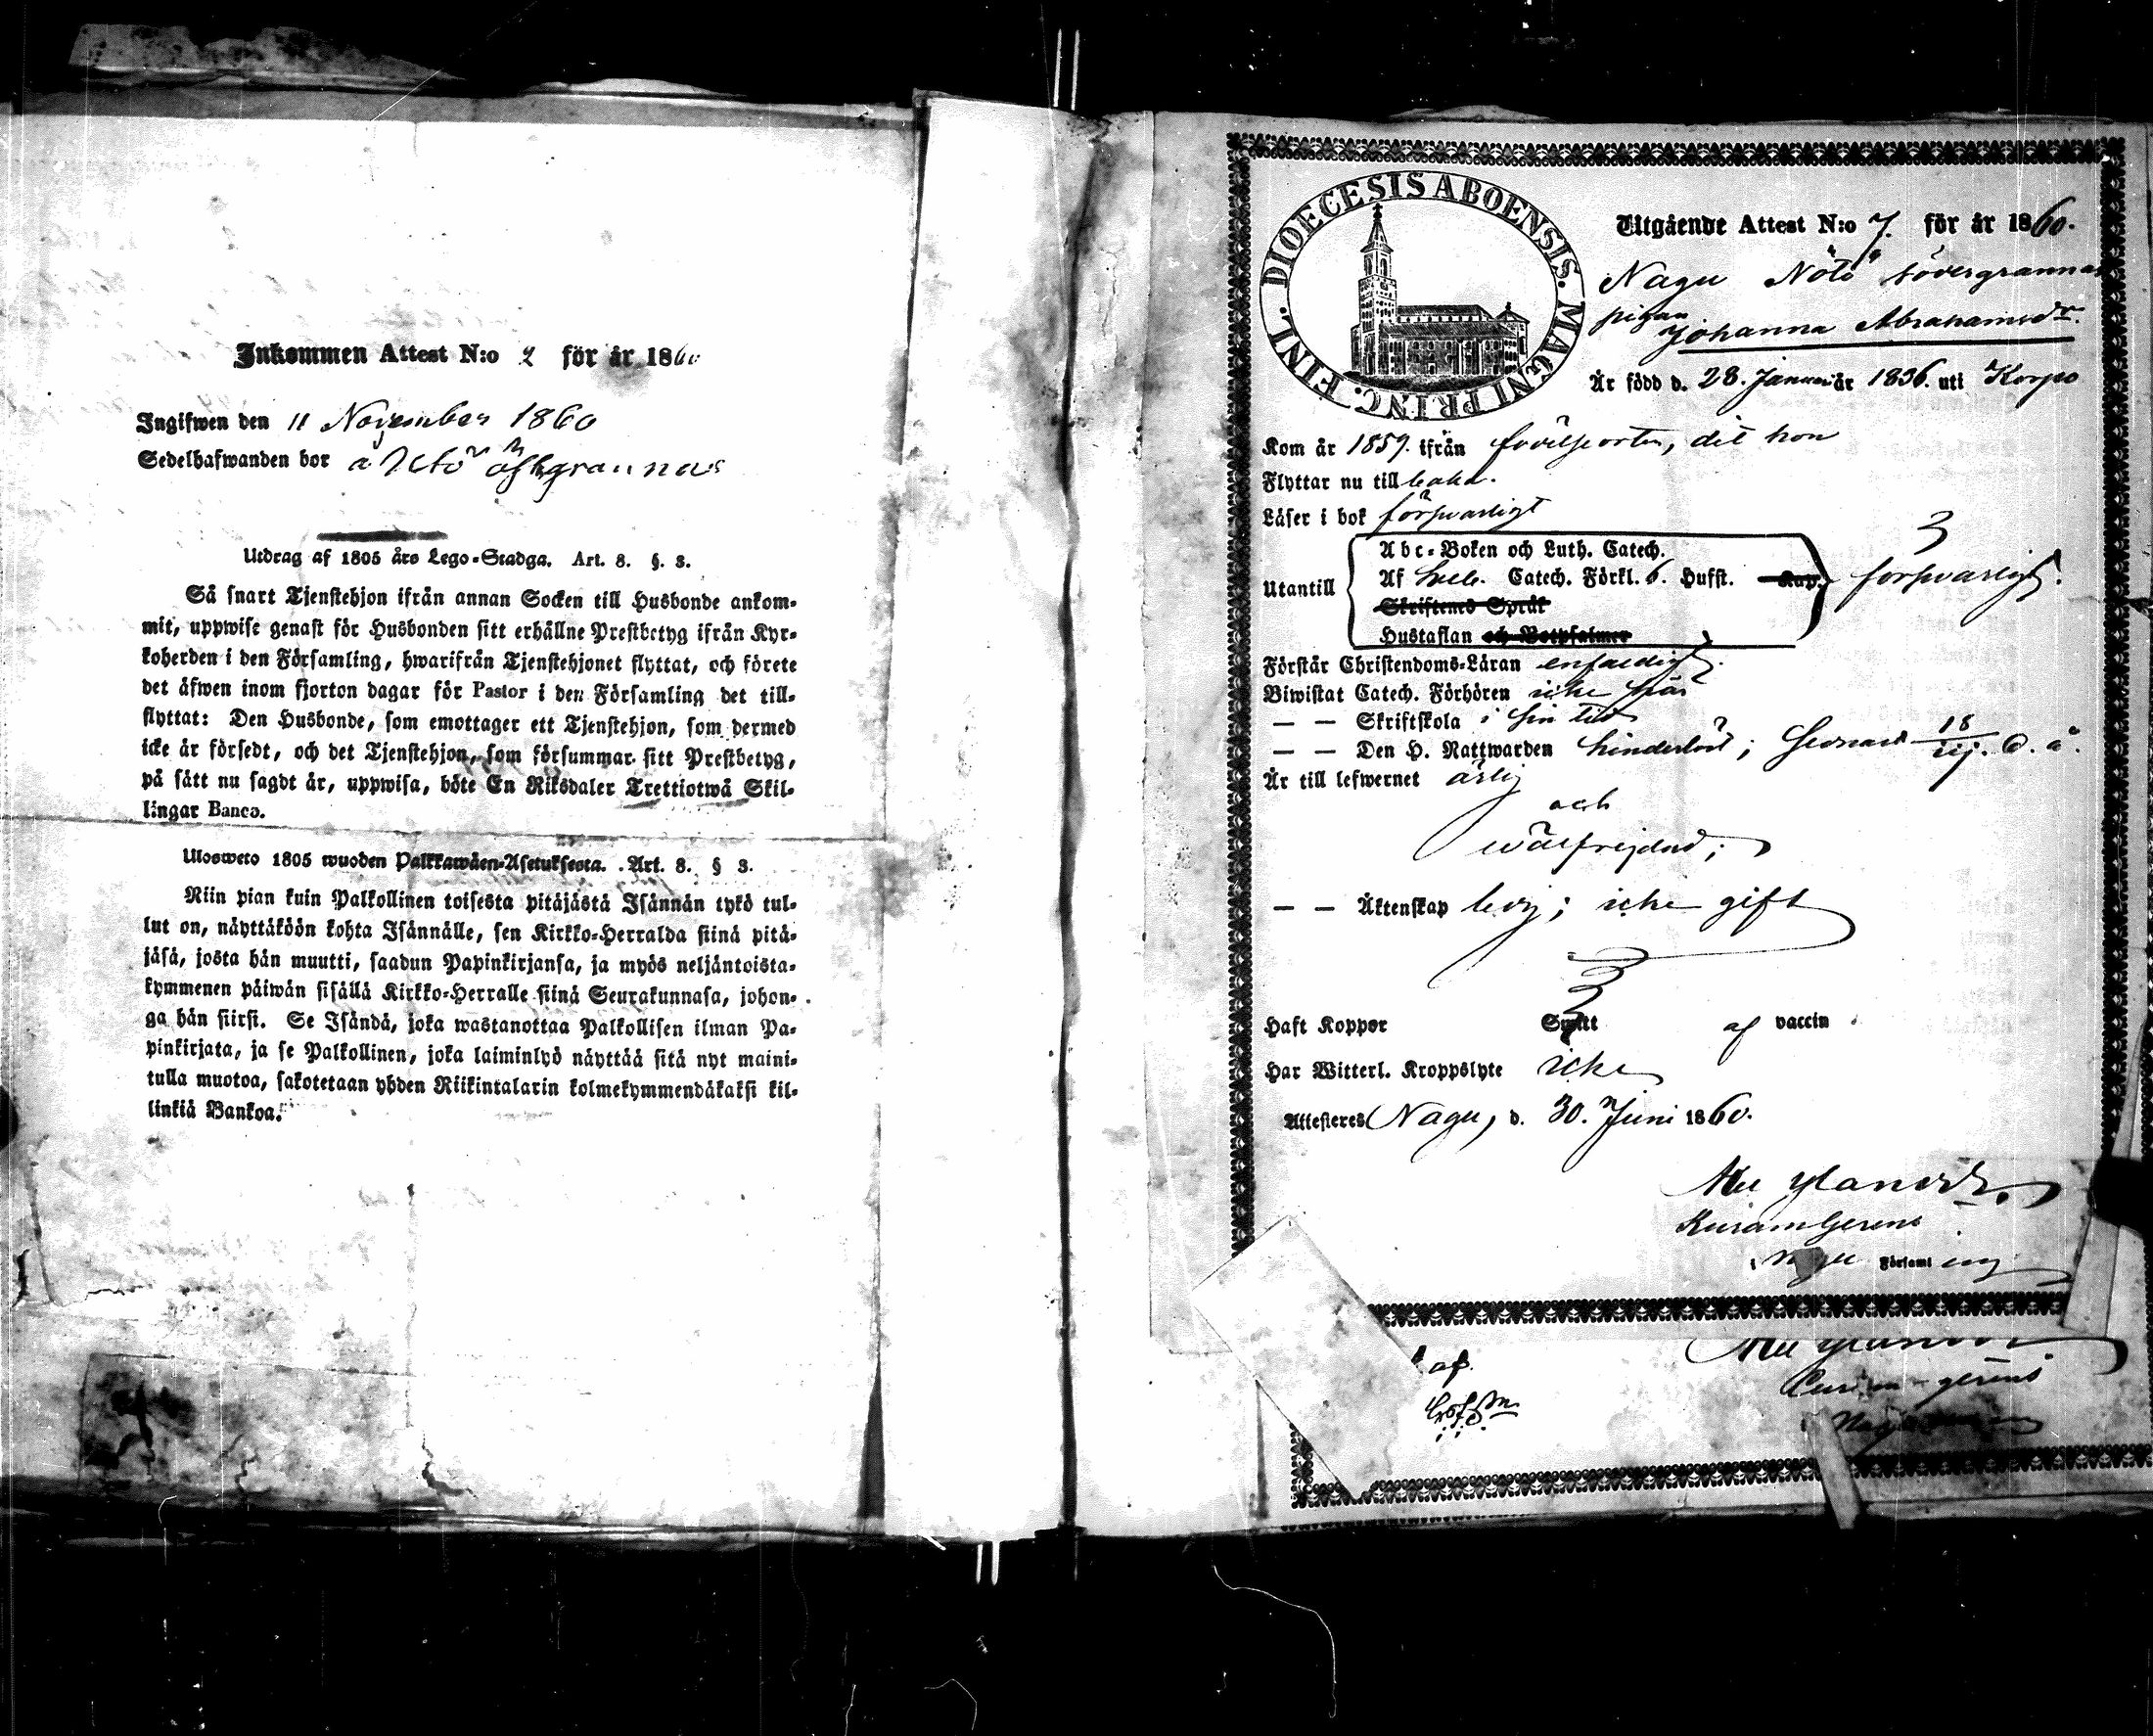 Inkommen Attest N:o 2 för år 1860
Ingifwen den 11 November 1860
Sedelhafwanden bor å Utö östergrannas
Utdrag af 1805 års Lego-Stadga. Art. 8. §. 3.
Så snart Tjenstehjon ifrån annan Socken till Husbonde ankom-
mit, uppwise genast för Husbonden sitt erhållne Prestbetyg ifrån Kyr-
koherden i den Församling, hwarifrån Tjenstehjonet flyttat, och förete
det äfwen inom fjorton dagar för Pastor i den Församling det till-
flyttat: Den Husbonde, som emottager ett Tjenstehjon, som dermed
icke är försedt, och det Tjenstehjon, som försummar sitt Prestbetyg,
på sätt nu sagdt är, uppwisa, böte En Riksdaler Trettiotwå Skil-
lingar Banco.
Ulosweto 1805 wuoden Palkkawäen-Asetuksesta. Art. 8. § 3.
Niin pian kuin Palkollinen toisesta pitäjästä Isännän tykö tul-
lut on, näyttäköön kohta Isännälle, sen Kirkko-Herralda siinä pitä-
jäsä, josta hän muutti, saadun Papinkirjansa, ja myös neljäntoista-
kymmenen päiwän sisällä Kirkko-Herralle siinä Seurakunnasa, johon-
ga hän siirsi. Se Isändä, joka wastanottaa Palkollisen ilman Pa-
pinkirjata, ja se Palkollinen, joka laiminlyö näyttää sitä nyt maini-
tulla muotoa, sakotetaan yhden Riikintalarin kolmekymmendäkaksi kil-
linkiä Bankoa.
DIOECESIS ABOENSIS. MAGNI PRINC. FINL.
Utgående Attest N:o 7. för år 1860.
Nagu Nötö södergrannas
pigan Johanna Abrahamsdr.
Är född d. 28. Januari år 1836. uti Korpo
Kom år 1859. ifrån födelseorten, dit hon
Flyttar nu tillbaka.
Läser i bok försvarligt
Abc-Boken och Luth. Catech.
Utantill Af Sveb. Catech. Förkl. 6. Hufst. Kap. försvarligt.
Skriftenes Språk
Hustaflan och Botpsalmer
Förstår Christendoms-Läran enfaldigt.
Biwistat Catech. Förhören icke här
— — Skriftskola i sin tid
— — Den H. Nattwarden hinderlöst; senast
Är till lefwernet ärlig
och
wälfrejdad;
— — Äktenskap ledig; icke gift
Haft Koppor Smitt af vaccin
Har Witterl. Kroppslyte icke
Attesteres Nagu, d. 30. Juni 1860.
Curam Gerens
i Nagu Församling
af